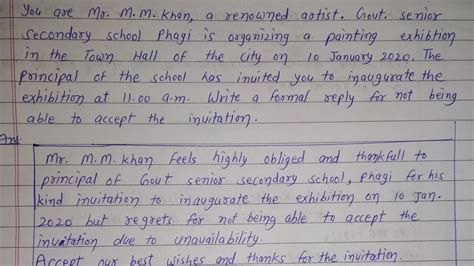 You are Mr. M.M. Khan, a renowned artist. Govt. senior
secondary school Phagi is organizing a painting exhibtion
in the Town Hall of the city on 10 January 2020. The
principal of the school has invited you to inaugurate the
exhibition at 11.00 a.m. Write a formal reply for not being
able to accept the invitation.
Ans.
Mr. M.M. Khan feels highly obliged and thankfull to
principal of Govt senior secondary school, Phagi for his
kind invitation to inaugurate the exhibition on 10 Jan.
2020 but regrets for not being able to accept the
invitation due to unavailability.
Accept our best wishes and thanks for the invitation.